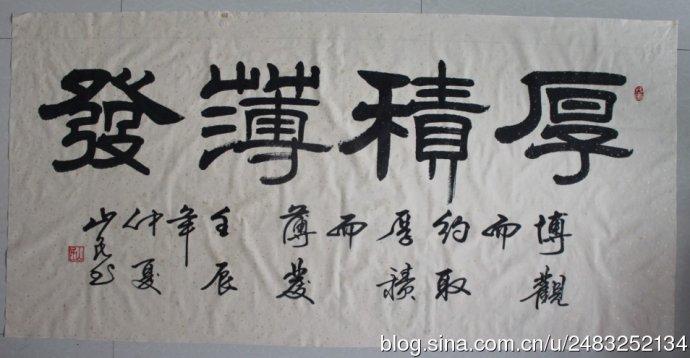 厚積薄發
博觀
而
約取
厚積
而
薄發
壬辰
年
仲夏
山民书
blog.sina.com.cn/u/2483252134